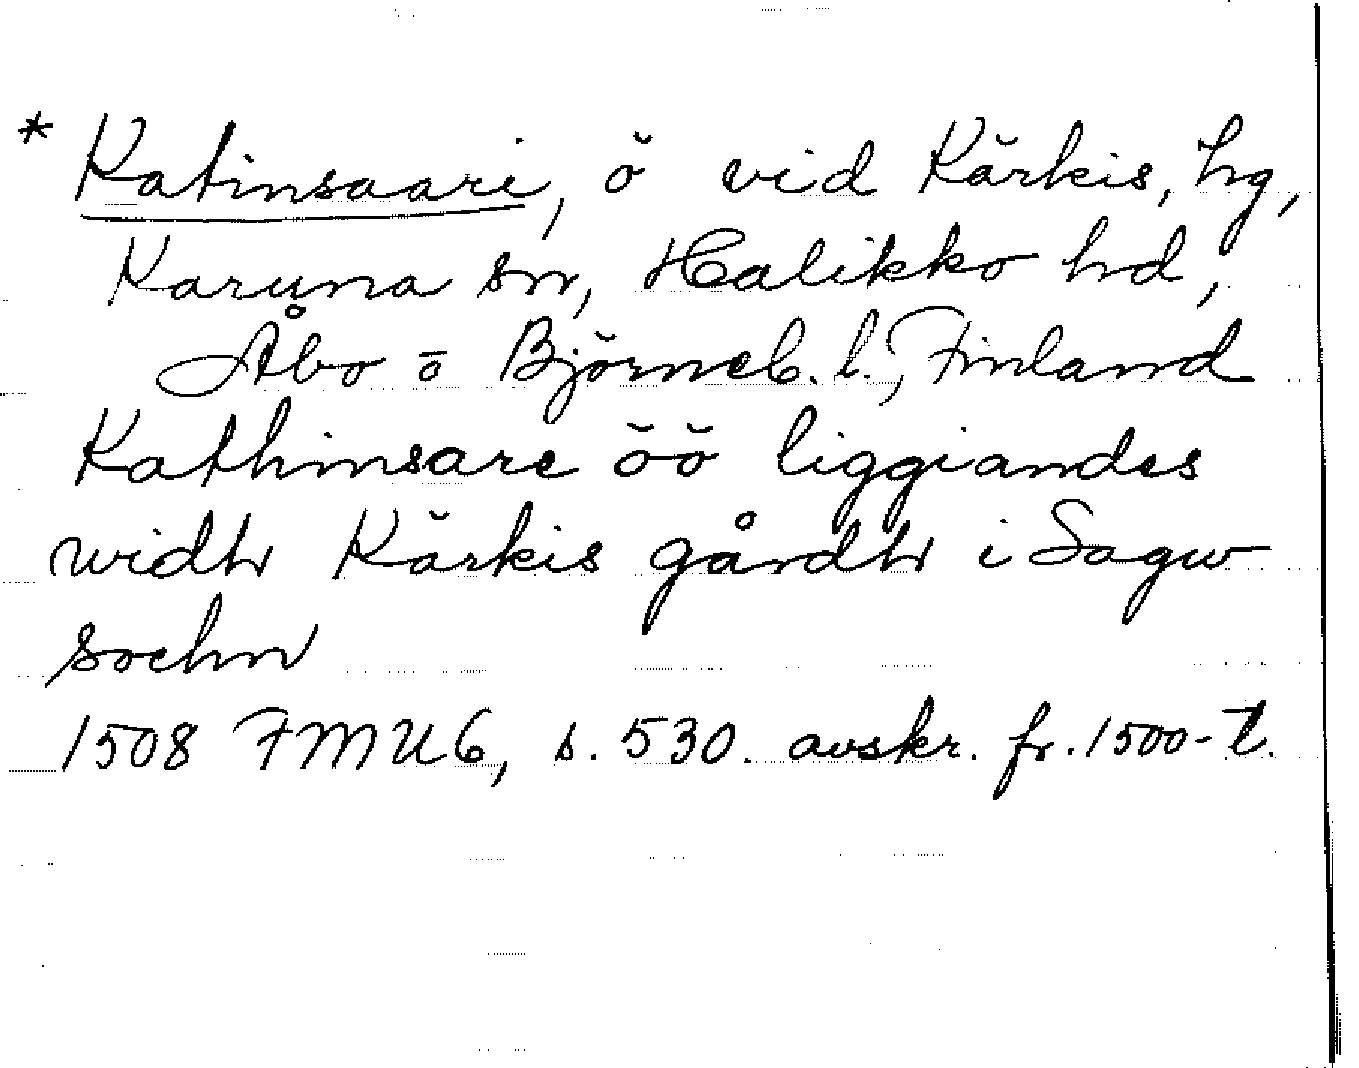 * Katinsaari, ö vid Kärkis, hg,
Karuna sn, Halikko hd,
Åbo o Björneb. l., Finland
Kathinsare öö liggiandes
widh Kärkis gårdh i Sagw
sochn
1508 FMU6, s. 530. avskr. fr. 1500-t.